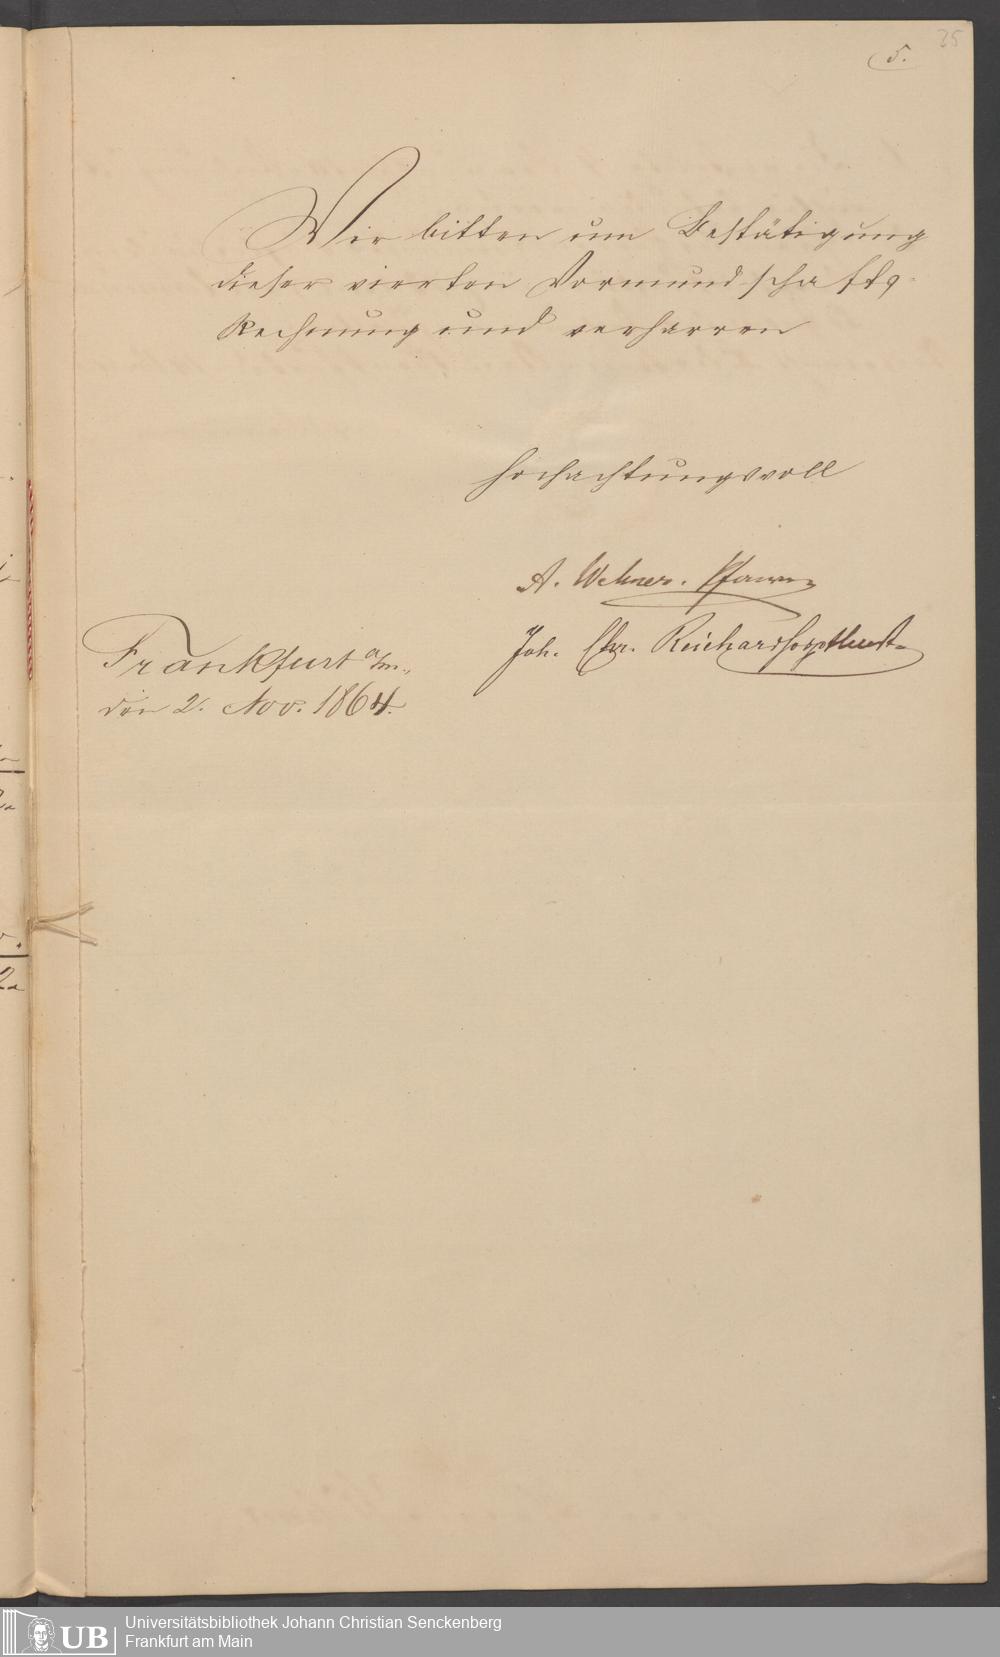 35
5.
Wir bitten um Bestätigung
dieser vierten Vormundschafts-
Rechnung und verharren
hochachtungsvoll
A. Wehner. Pfarrer
Joh. Chr. Reichard
Frankfurt a/m.,
den 2. Nov. 1864.
UB
Universitätsbibliothek Johann Christian Senckenberg
Frankfurt am Main